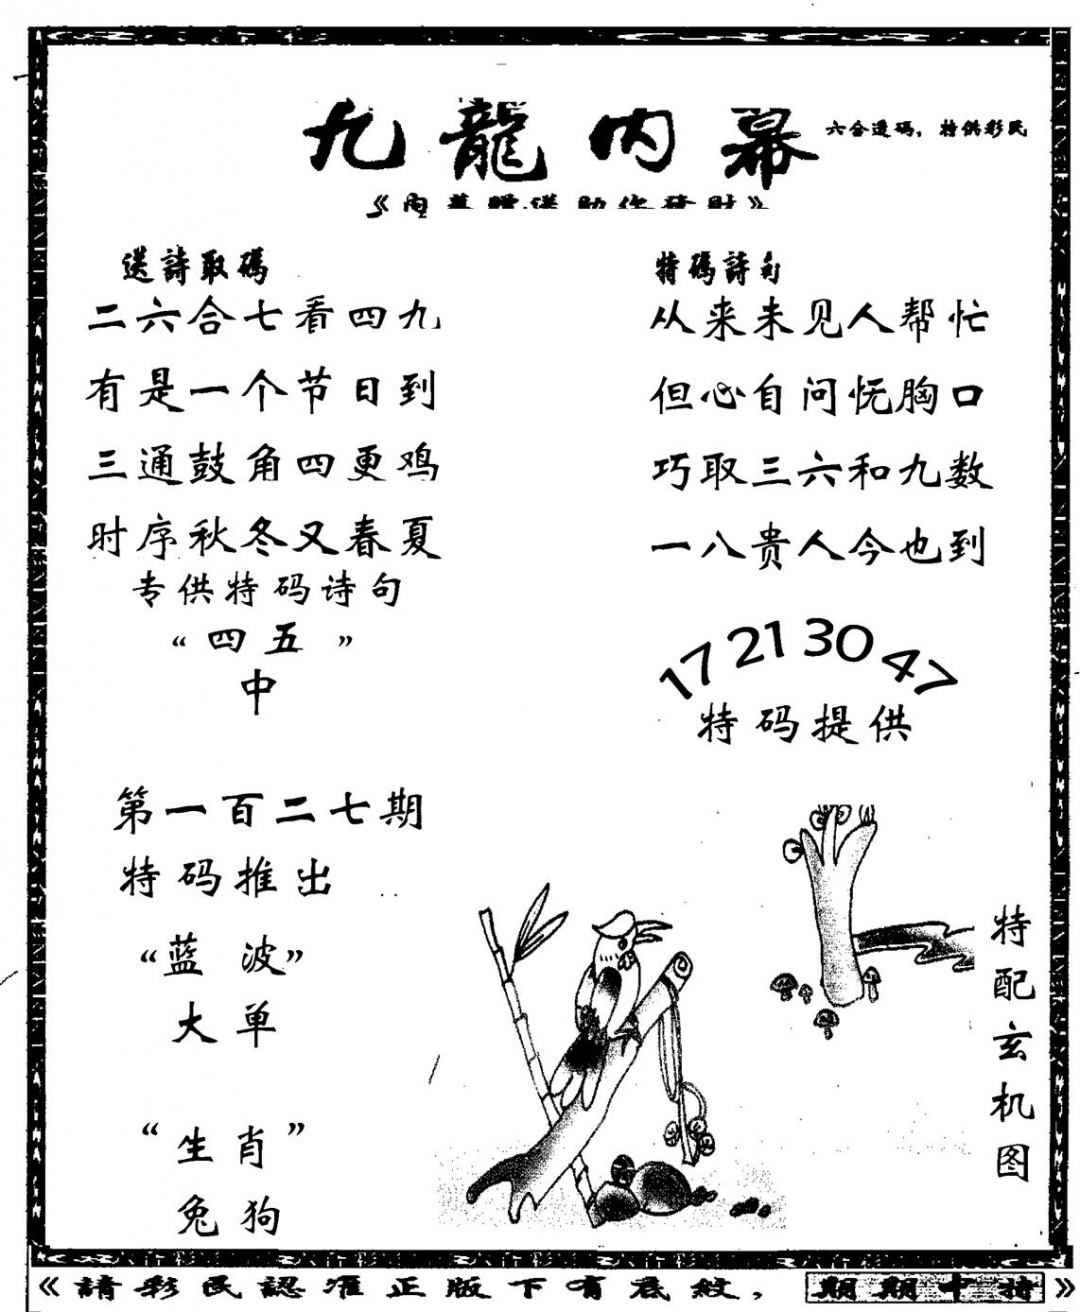 九龍内幕
六合透码，特供彩民
送詩取碼
二六合七看四九
有是一个节日到
三通鼓角四更鸡
时序秋冬又春夏
专供特码诗句
“四五”
中
特碼詩句
从来未见人帮忙
但心自问怃胸口
巧取三六和九数
一八贵人今也到
17 21 30 47
特码提供
第一百二七期
特码推出
“蓝波”
大单
“生肖”
兔狗
特配玄机图
《請彩民認准正版下有底紋，期期中特》